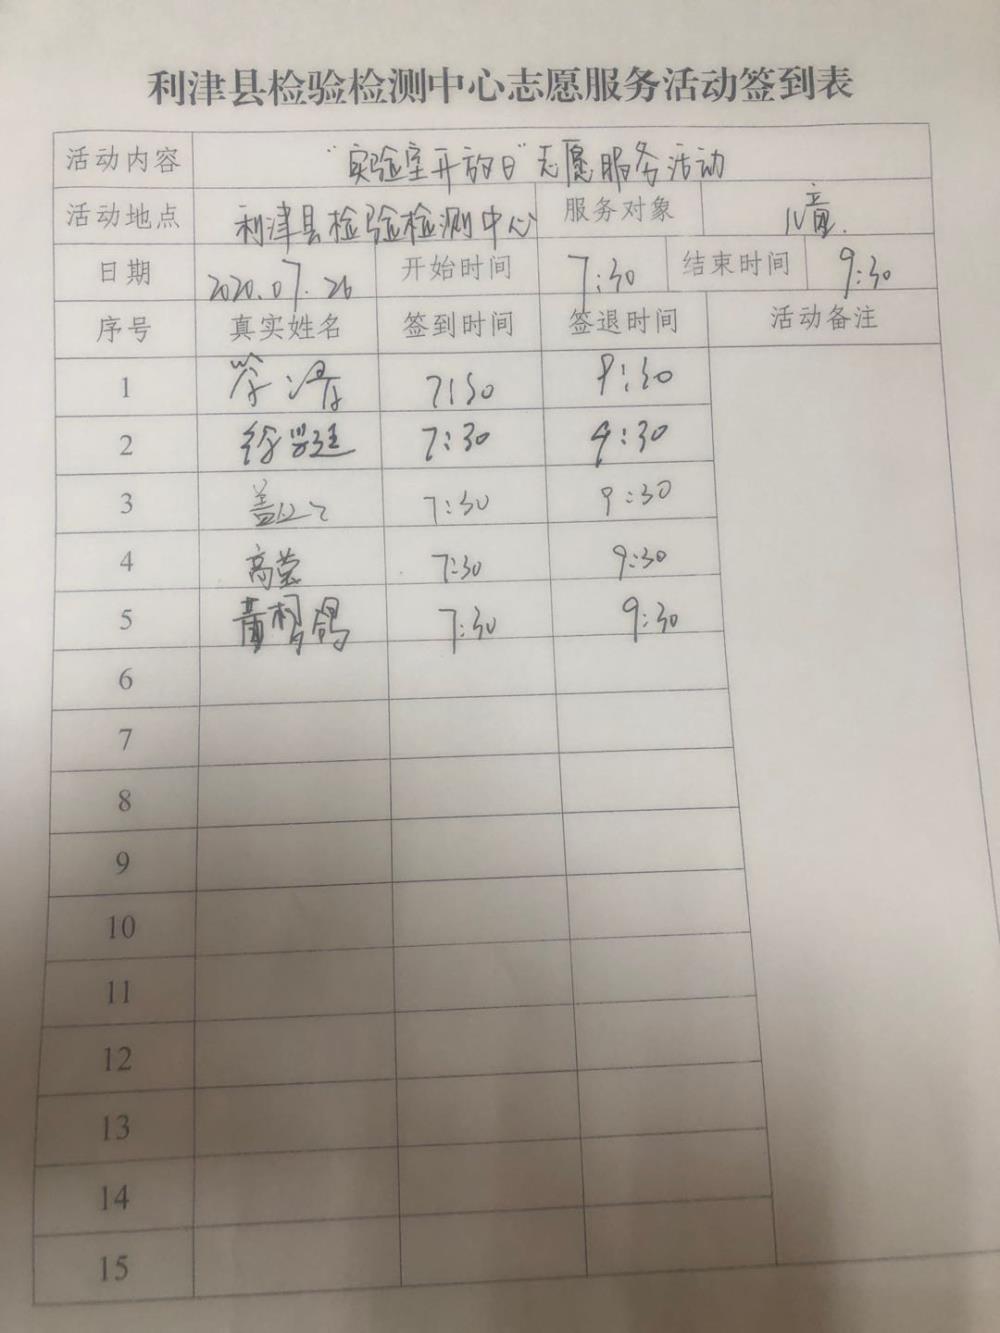 利津县检验检测中心志愿服务活动签到表
活动内容 “实验室开放日”志愿服务活动
活动地点 利津县检验检测中心 服务对象 儿童.
日期 2020.07.26 开始时间 7:30 结束时间 9:30
序号 真实姓名 签到时间 签退时间 活动备注
1 7:30 9:30
2 7:30 9:30
3 7:30 9:30
4 高莹 7:30 9:30
5 7:30 9:30
6
7
8
9
10
11
12
13
14
15